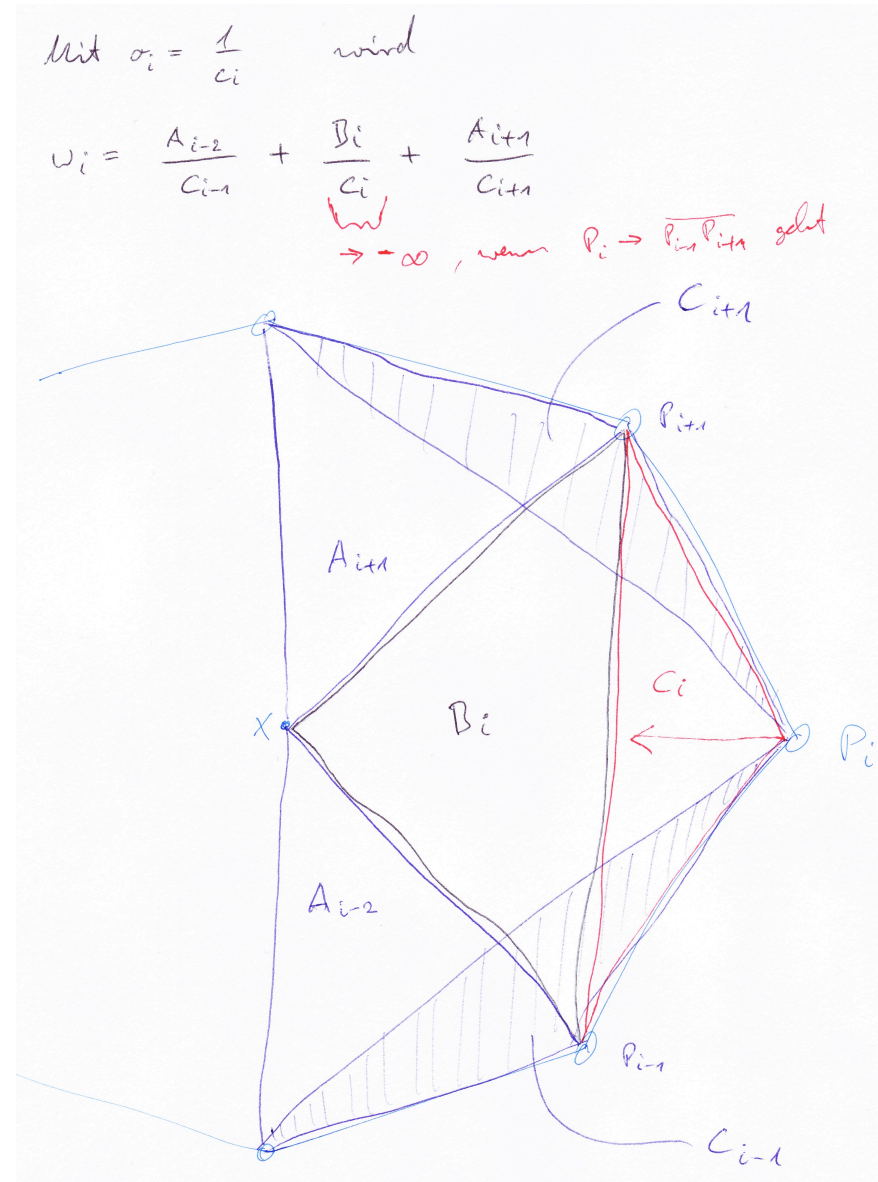 Mit σ_i = 1/c_i wird
ω_i = A_{i-2}/C_{i-1} + B_i/C_i + A_{i+1}/C_{i+1}
→ -∞, wenn P_i → \overline{P_{i-1}P_{i+1}} geht
C_{i+1}
P_{i+1}
A_{i+1}
C_i
X
B_i
P_i
A_{i-2}
P_{i-1}
C_{i-1}